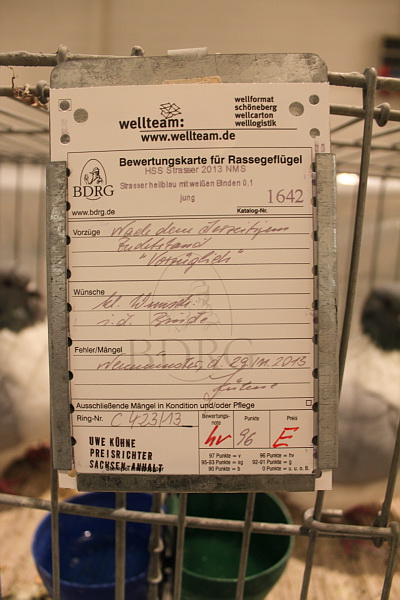 wellteam:
wellformat
schöneberg
wellcarton
welllogistik
www.wellteam.de
BDRG
Bewertungskarte für Rassegeflügel
HSS Strasser 2013 NMS
Strasser hellblau mit weißen Binden 0,1
jung
1642
www.bdrg.de
Katalog-Nr.
Vorzüge
Nach dem
"Vorzüglich"
Wünsche
kl. Wunsch
i. d. Binde
Fehler/Mängel
Neumünster, d. 29/11.2013
BDRG
Ausschließende Mängel in Kondition und/oder Pflege
Ring-Nr.
C 423/13
Bewertungs-
note
hv
Punkte
96
Preis
E
UWE KÜHNE
PREISRICHTER
SACHSEN-ANHALT
97 Punkte = v
96 Punkte = hv
95-93 Punkte = sg
92-91 Punkte = g
90 Punkte = b
0 Punkte = u. o. B.